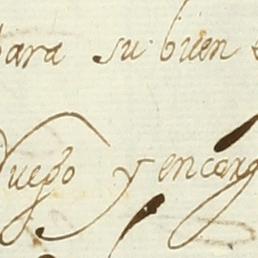 para su buen
Ruego y encarg